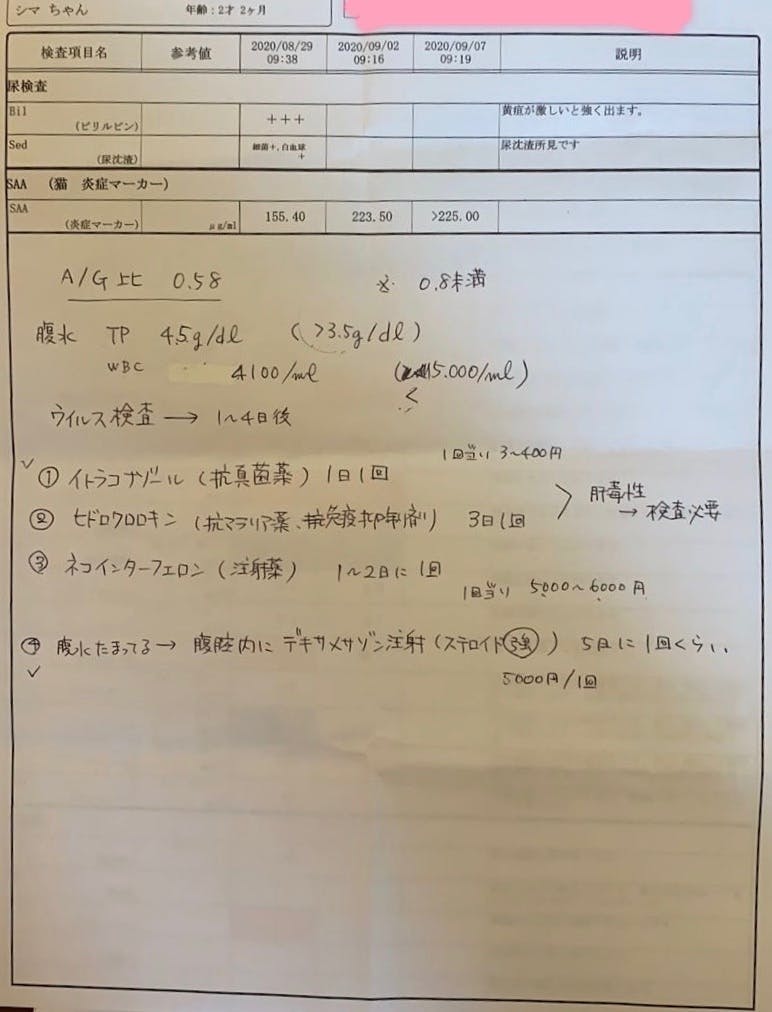 シマ ちゃん 年齢：2才 2ヶ月
検査項目名 参考値 2020/08/29 09:38 2020/09/02 09:16 2020/09/07 09:19 説明
尿検査
Bil (ビリルビン) +++ 黄疸が激しいと強く出ます。
Sed (尿沈渣) 細菌+,白血球+ 尿沈渣所見です
SAA (猫 炎症マーカー)
SAA (炎症マーカー) μg/ml 155.40 223.50 >225.00
A/G比 0.58 ※ 0.8未満
腹水 TP 4.5g/dl (>3.5g/dl)
WBC 4100/ml (<5.000/ml)
ウイルス検査 → 1〜4日後
1回当り 3〜400円
✓ ① イトラコナゾール (抗真菌薬) 1日1回
② ヒドロクロロキン (抗マラリア薬、免疫抑制剤) 3日1回 > 肝毒性 → 検査必要
③ ネコインターフェロン (注射薬) 1〜2日に1回
1回当り 5000〜6000円
✓ ④ 腹水たまってる → 腹腔内に デキサメサゾン注射 (ステロイド強) 5日に1回くらい
5000円/1回